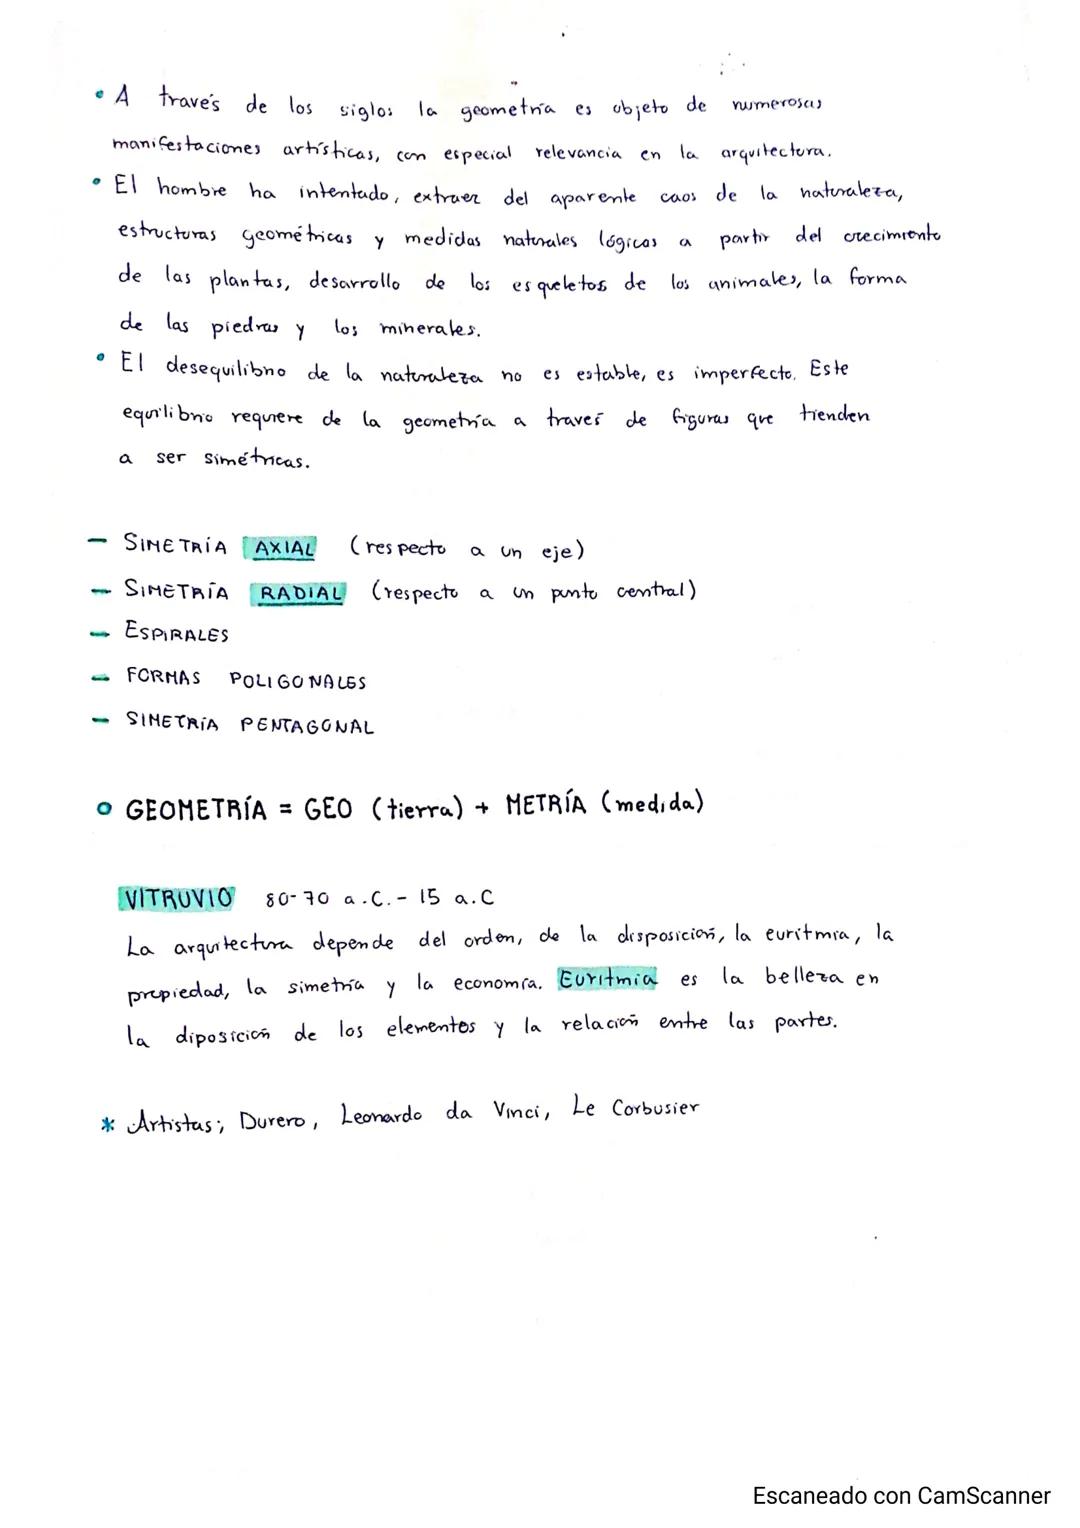 • A través de los siglos la geometría es objeto de numerosas
manifestaciones artísticas, con especial relevancia en la arquitectura.
• El hombre ha intentado, extraer del aparente caos de la naturaleza,
estructuras geométricas y medidas naturales lógicas a partir del crecimiento
de las plantas, desarrollo de los esqueletos de los animales, la forma
de las piedras y los minerales.
• El desequilibrio de la naturaleza no es estable, es imperfecto. Este
equilibrio requiere de la geometría a través de figuras que tienden
a ser simétricas.
- SIMETRÍA AXIAL (respecto a un eje)
- SIMETRÍA RADIAL (respecto a un punto central)
- ESPIRALES
- FORMAS POLIGONALES
- SIMETRÍA PENTAGONAL
o GEOMETRÍA = GEO (tierra) + METRÍA (medida)
VITRUVIO 80-70 a.C. - 15 a.C
La arquitectura depende del orden, de la disposición, la euritmia, la
propiedad, la simetría y la economía. Euritmia es la belleza en
la diposición de los elementos y la relación entre las partes.
* Artistas; Durero, Leonardo da Vinci, Le Corbusier
Escaneado con CamScanner